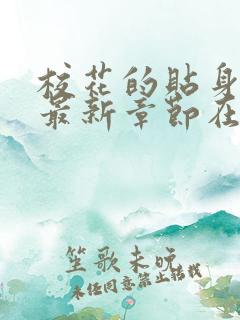 校花的贴身
最新章节在
笙歌未晚
未经同意禁止转载